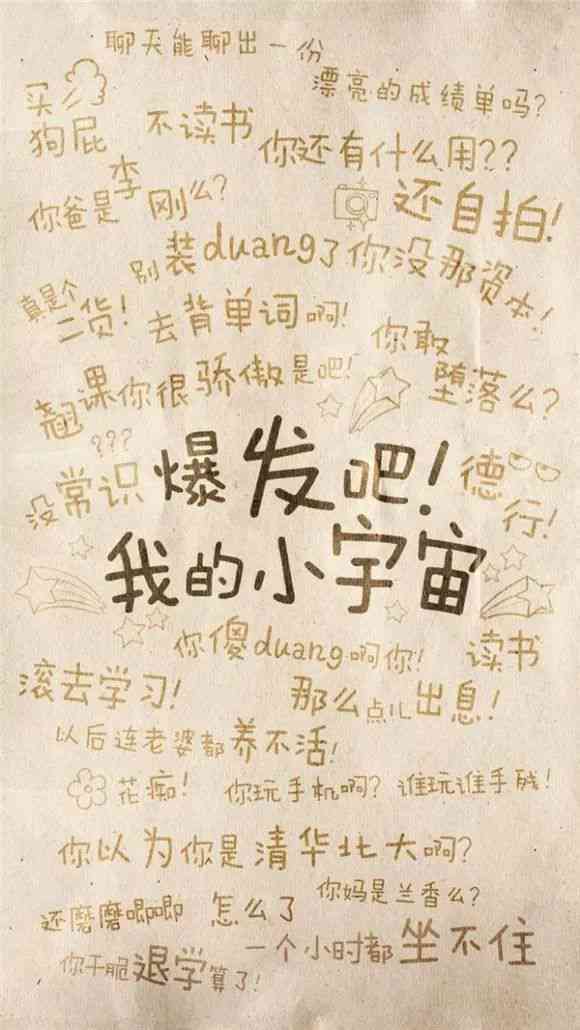 聊天能聊出一份
漂亮的成绩单吗?
买
狗屁
不读书
你还有什么用??
你爸是李刚么?
还自拍!
别装duang了你没那资本!
真是个
二货!
去背单词啊!
你敢
堕落么?
翘课你很骄傲是吧!
???
没常识
爆发吧!
德行!
我的小宇宙
你傻duang啊你!
读书
滚去学习!
那么点儿出息!
以后连老婆都养不活!
花痴!
你玩手机啊?
谁玩谁手残!
你以为你是清华北大啊?
你妈是兰香么?
还磨磨唧唧
怎么了
一个小时都坐不住
你干脆退学算了!